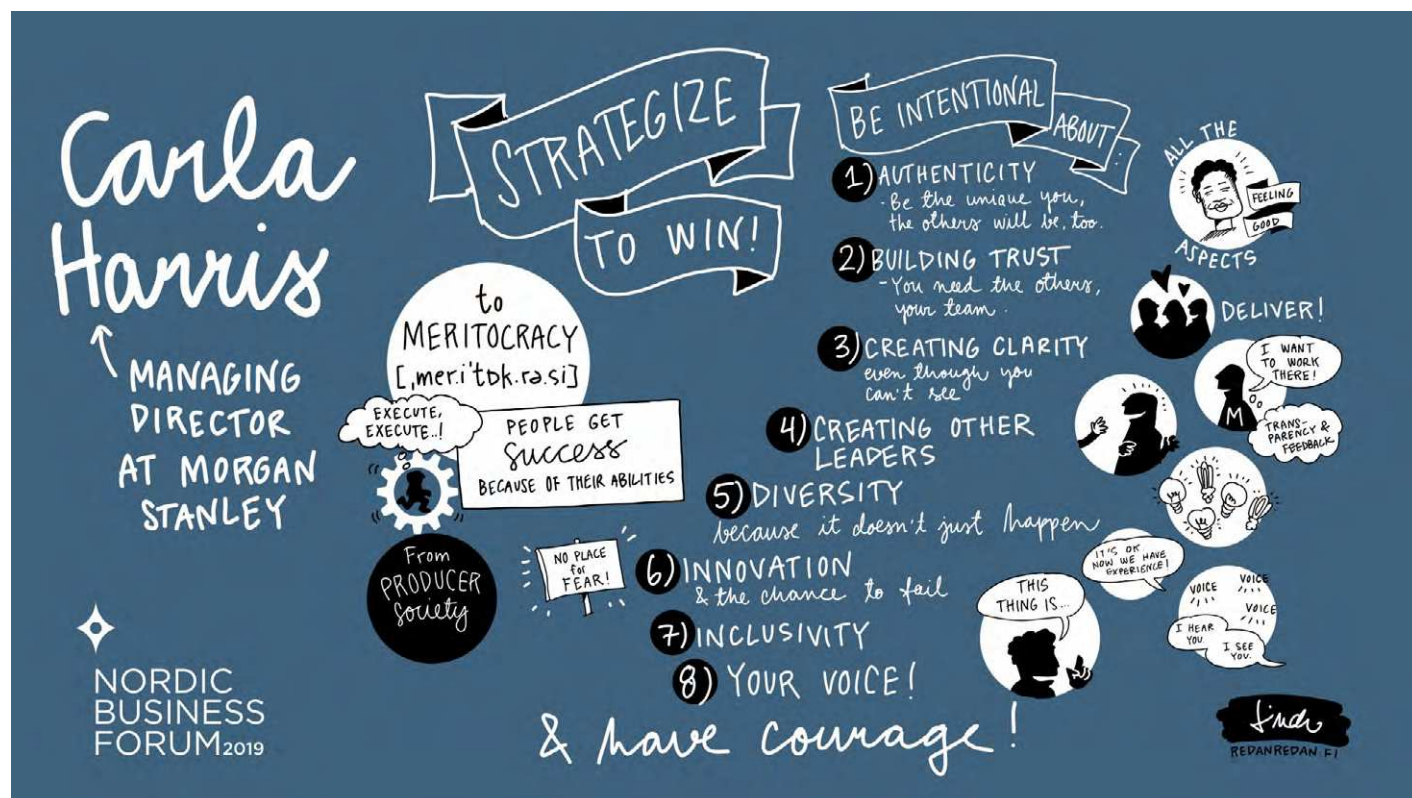 Carla
Harris
MANAGING
DIRECTOR
AT MORGAN
STANLEY
NORDIC
BUSINESS
FORUM2019
STRATEGIZE
TO WIN!
to
MERITOCRACY
[ˌmer.iˈtɒk.rə.si]
EXECUTE,
EXECUTE..!
PEOPLE GET
success
BECAUSE OF THEIR ABILITIES
From
PRODUCER
Society
NO PLACE
for
FEAR!
BE INTENTIONAL
ABOUT:
1) AUTHENTICITY
- Be the unique you,
the others will be, too.
2) BUILDING TRUST
- You need the others,
your team.
3) CREATING CLARITY
even though you
can't see
4) CREATING OTHER
LEADERS
5) DIVERSITY
because it doesn't just happen
6) INNOVATION
& the chance to fail
7) INCLUSIVITY
8) YOUR VOICE!
& have courage!
ALL THE
FEELING
GOOD
ASPECTS
DELIVER!
I WANT
TO WORK
THERE!
M
TRANS-
PARENCY &
FEEDBACK
IT'S OK
NOW WE HAVE
EXPERIENCE!
THIS
THING IS...
VOICE
VOICE
VOICE
I HEAR
YOU.
I SEE
YOU.
REDANREDAN.FI